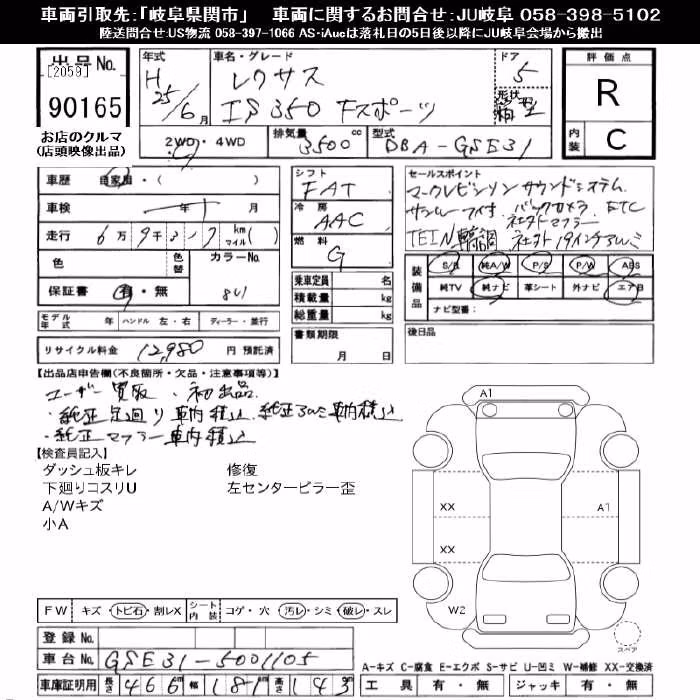 車両引取先:「岐阜県関市」 車両に関するお問合せ:JU岐阜 058-398-5102
陸送問合せ:US物流 058-397-1066 AS-iAucは落札日の5日後以降にJU岐阜会場から搬出
出品No. [2059] 90165
お店のクルマ
(店頭映像出品)
年式 H25/6月 車名・グレード レクサス IS350 Fスポーツ ドア 5 形状 箱型
2WD・4WD 排気量 3500cc 型式 DBA-GSE31
評価点 R
内装 C
車歴 自家用・( )
車検 年 月
走行 6万9千 km マイル( )
色 色替 カラーNo.
保証書 有・無 8U1
モデル年式 年 ハンドル 左・右 ディーラー・並行
リサイクル料金 12,980 円 預託済
シフト FAT
冷房 AAC
燃料 G
乗車定員 名
積載量 kg
総重量 kg
書類期限 月 日
セールスポイント
マークレビンソンサウンドシステム
サンルーフ付 バックカメラ ETC
社外マフラー
TEIN車高調 社外19インチアルミ
装備品 S/R 純A/W P/S P/W ABS
純TV 純ナビ 革シート 外ナビ エアB
ナビ型番:
後日品
【出品店申告欄(不良箇所・欠品・注意事項等)】
ユーザー買取・初出品
・純正足廻り車内積込 純正アルミ車内積込
・純正マフラー車内積込
【検査員記入】
ダッシュ板キレ 修復
下廻りコスリU 左センターピラー歪
A/Wキズ
小A
A1
XX A1
XX
W2
スペア
FW キズ・トビ石・割レX シート内装 コゲ・穴 汚レ・シミ 破レ・スレ
登録No.
車台No. GSE31-5001105
車庫証明用 長さ 466 幅 181 高さ 143
A-キズ C-腐食 E-エクボ S-サビ U-凹ミ W-補修 XX-交換済
工具 有・無 ジャッキ 有・無